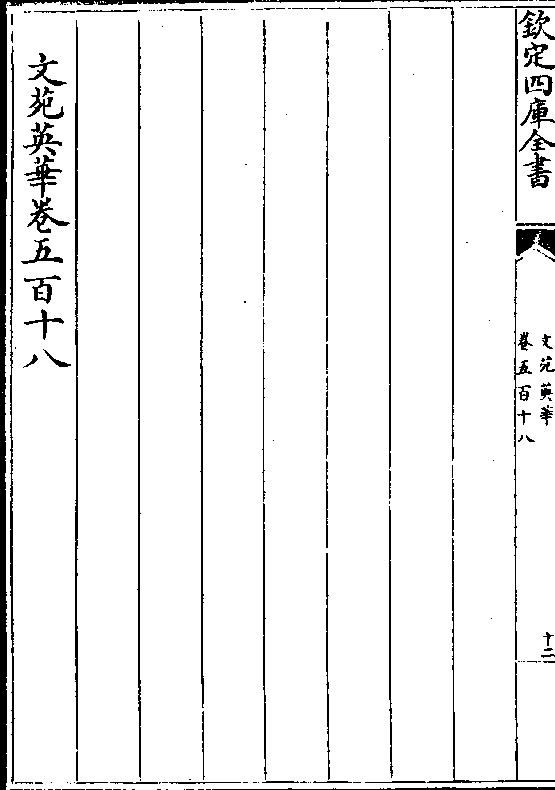 欽定四庫全書
文苑英華
卷五百十八
十二
文苑英華卷五百十八